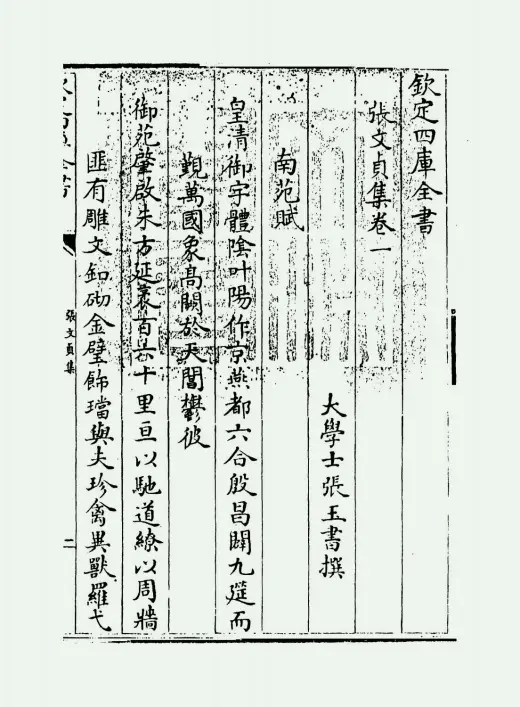 欽定四庫全書
張文貞集卷一
大學士張玉書撰
南苑賦
皇清御宇體陰叶陽作京燕都六合殷昌闢九筵而
觐萬國象高闕於天閶鬱彼
御苑肇啟朱方延袤百六十里亘以馳道繚以周牆
匪有雕文釦砌金璧飾璫與夫珍禽異獸羅弋
張文貞集
二